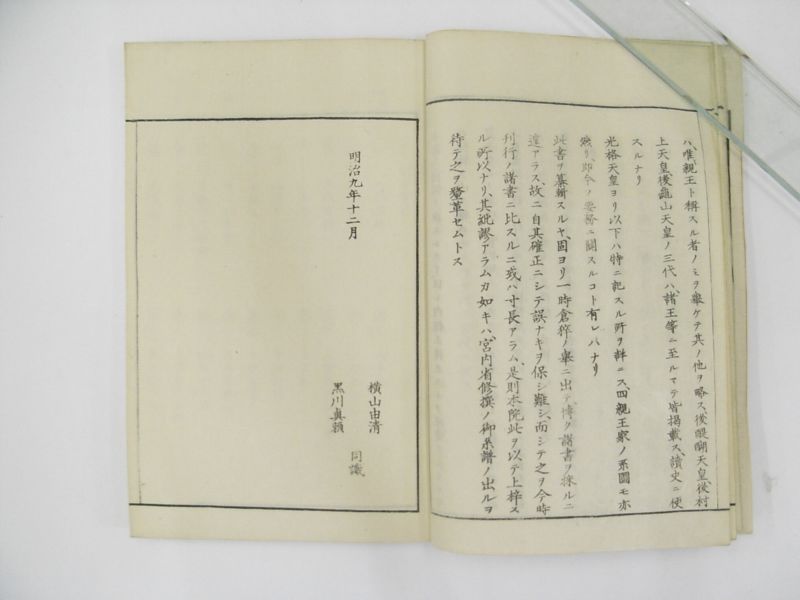 ハ、唯親王ト稱スル者ノミヲ擧ケテ其ノ他ヲ略ス、後醍醐天皇後村
上天皇後龜山天皇ノ三代ハ諸王等ニ至ルマテ皆揭載ス、讀史ニ便
スルナリ
光格天皇ヨリ以下ハ特ニ記スル所ヲ詳ニス、四親王家ノ系圖モ亦
然リ、即今ノ要務ニ關スルコト有レハナリ
此書ヲ纂輯スルヤ、固ヨリ一時倉猝ノ擧ニ出テ、博ク諸書ヲ採ルニ
遑アラス、故ニ自其確正ニシテ誤ナキヲ保シ難シ、而シテ之ヲ今時
刊行ノ諸書ニ比スルニ或ハ寸長アラム、是則本院此ヲ以テ上梓ス
ル所以ナリ、其紕謬アラムカ如キハ、宮內省修撰ノ御系譜ノ出ルヲ
待テ之ヲ釐革セムトス
明治九年十二月
橫山由淸
黑川眞賴
同識